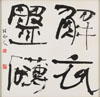 解衣
盤礴